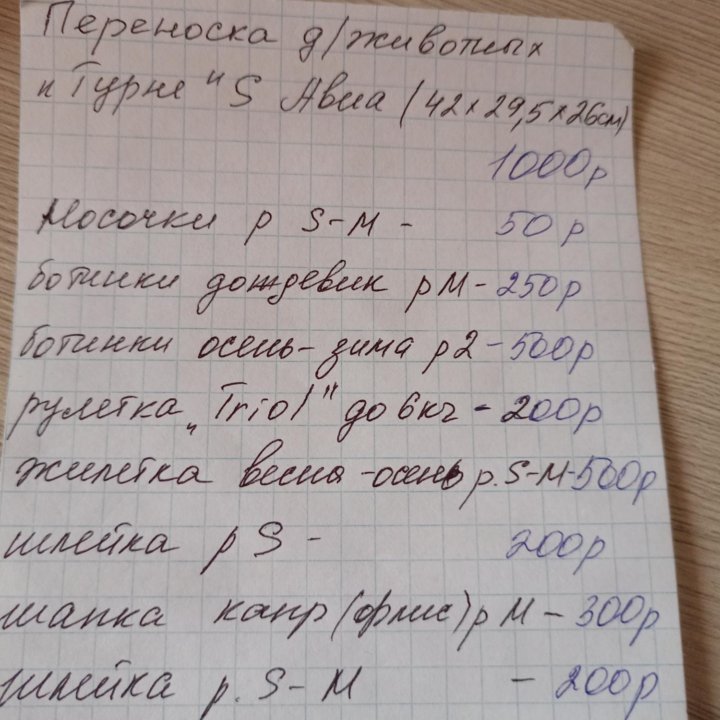 Переноска д/животных
"Турне" S Авиа (42х29,5х26см)
1000р
Носочки р S-М - 50р
ботинки дождевик рМ-250р
ботинки осень-зима р2-500р
рулетка "Triol" до 6кг - 200р
жилетка весна-осень р.S-М-500р
шлейка р S - 200р
шапка капр(флис)р М-300р
шлейка р.S-М - 200р